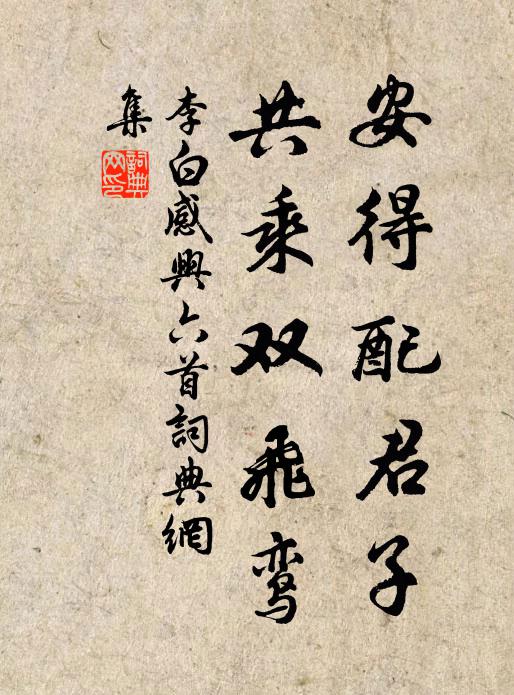 安得配君子
共乘双飛鸾
李白感興六首詞典網
集
詞典
网印